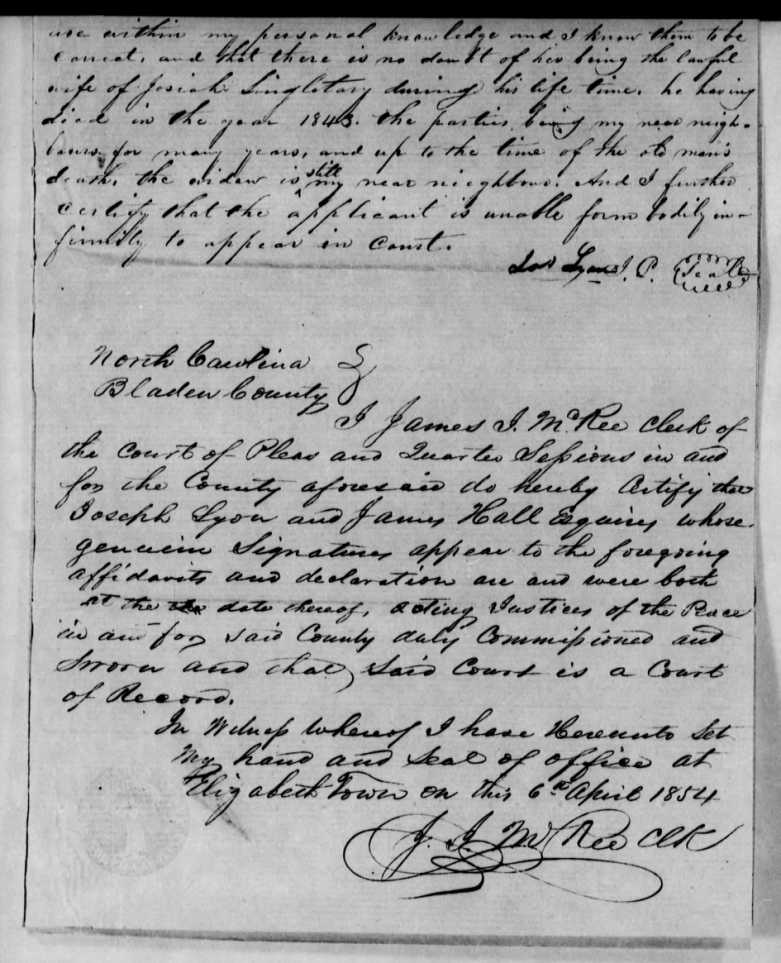 are within my personal knowledge and I know them to be
correct, and that there is no doubt of her being the lawful
wife of Josiah Singletary during his life time. he having
died in the year 1843. the parties being my near neigh-
bours for many years, and up to the time of the old man's
death, the widow is still my near nieghbour. And I further
certify that the applicant is unable form bodily in-
firmity to appear in Court.
Jos Lyon J. P. Seal
North Carolina
Bladen County
I James I. McRee Clerk of
the Court of Pleas and Quarter Sessions in and
for the County aforesaid do hereby Certify that
Joseph Lyon and James Hall Esquires whose
genuein Signatures appear to the foregoing
affidavits and declaration are and were both
at the date thereof, acting Justices of the Peace
in and for said County duly Commissioned and
Sworn and that said Court is a Court
of Record.
In Witness whereof I have Hereunto Set
My hand and Seal of office at
Elizabeth Town on this 6th April 1854
J. I. McRee Clk